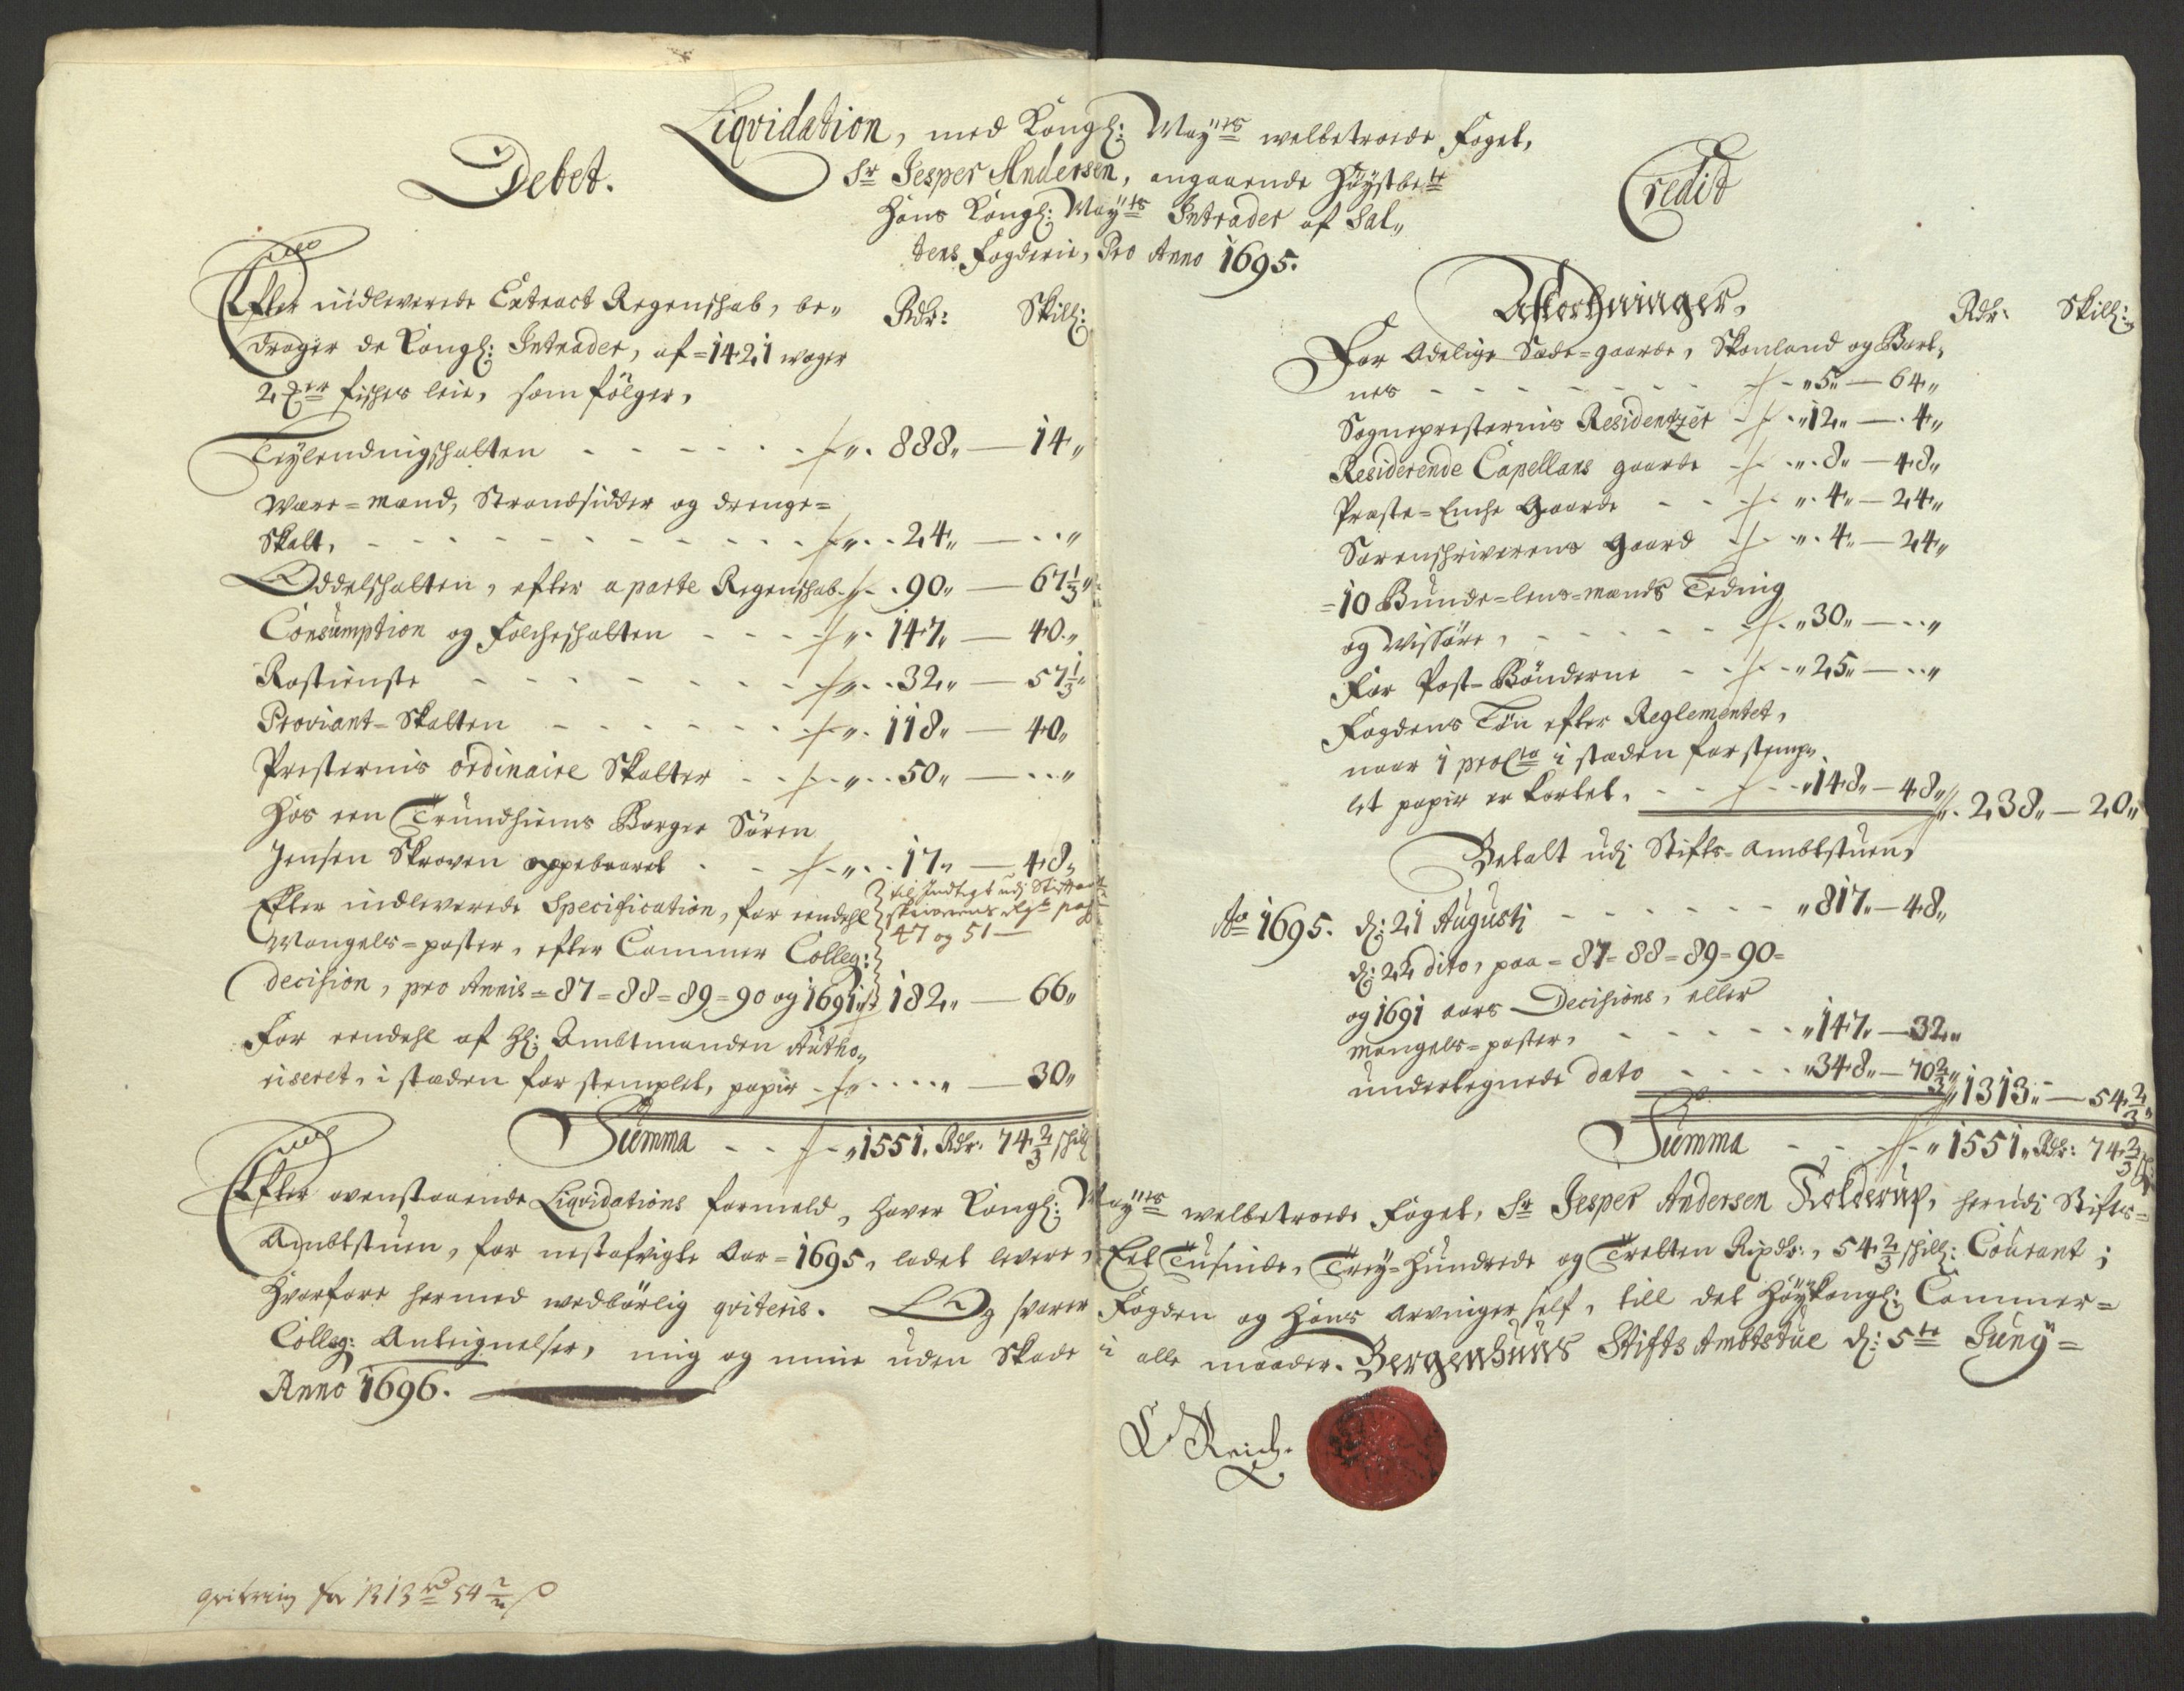 Liqvidation, med Kongl: May:ts welbetroede Foget,
Sr Jesper Andersen, angaaende Høystbete
Hans Kongl: May:ts Intrader af Sal,,
tens Fogderie, Pro Anno 1695.
Debet.
Efter indleverede Extract Regenschab, be,,
drager de Kongl: Intrader, af =1421 woger
2 Xer fisches leie, som følger,
Rdr: Skill:
Leylendingschatten - - - - - 888,, — 14,,
Ware=mænd, Strandsidder og drenge=
Skatt, - - - - - 24,, — - - ,,
Oddelschatten, efter aparte Regenschab - 90,, — 67 1/3,,
Consumption og Folcheschatten - - - 147,, — 40,,
Rostieniste - - - - - 32,, — 57 1/3,,
Proviant=Skatten - - - - - 118,, — 40,,
Presternis ordinaire Skatter - - - 50,, — - - ,,
Hos een Trundhiems Borger Søren
Jensen Skroven oppebaaret - - 17,, — 48,,
Efter indleverede Specification, for eendehl
Mangels=poster, efter Cammer Colleg:
decision, pro Annis =87=88=89=90 og 1691 182,, — 66,,
til Indtegt udj Stiftamt
skriverens pag
47 og 51 —
For eendehl af Hl: Ambtmanden Autho,,
riseret, i stæden for stemplet, papir - - - - ,, — 30,,
Summa - - - 1551. Rdr. 74 2/3 skill
Credit
Afkortninger,
Rdr: Skill:
For Adelige Sæde=gaarde, Skonland og Bort,
nes - - - - - 5,, — 64,,
Sognepresternis Residentzer - 12,, — 4,,
Residerende Capellans gaarde - 8,, — 48,,
Præste=Enche Gaarde - - 4,, — 24,,
Sorenschriverens gaard - 4,, — 24,,
=10 Bunde=lens=mænds Teding
og Wissøre, - - - - - 30,, — - - ,,
For Post=Bønderne - - - 25,, — - - ,,
Fogdens Løn efter Reglementet,
naar 1 procto i stæden for stemp,,
let papir er kortet, - - 148,, — 48,, 238,, — 20,,
Betalt udj Stifts=Ambtstuen,
Ao 1695. d: 21 Augustj - - - - - 817,, — 48,,
d: 22 dito, paa =87=88=89=90=
og 1691 aars Decisions, eller
mangels=poster, - - - - - 147,, — 32,,
undertegnede dato - - - - 348,, — 70 2/3,, 1313,, — 54 2/3,,
Summa - - - 1551,, Rdr: 74 2/3 s
Efter ovenstaaende Liqvidations formeld, haver Kongl: May:ts welbetroede Foget, Sr Jesper Andersen Folderup, herudj Stifts=
Ambtstuen, for nestafvigte Aar =1695, ladet levere, Eet Tusinde, Trey=Hundrede og Tretten Ripdr:, 54 2/3 skill: Courant;
Hvorfore hermed wedbørlig qviteris. Og svarer Fogden og Hans arvinger self, till det Høykongl: Cammer=
Colleg: Anteignelser, mig og mine uden Skade i alle maader. Bergenhuus Stifts Ambtstue d: 5te Juny=
Anno 1696.
Reich.
qvitering for 1313 rd 54 2/3 s